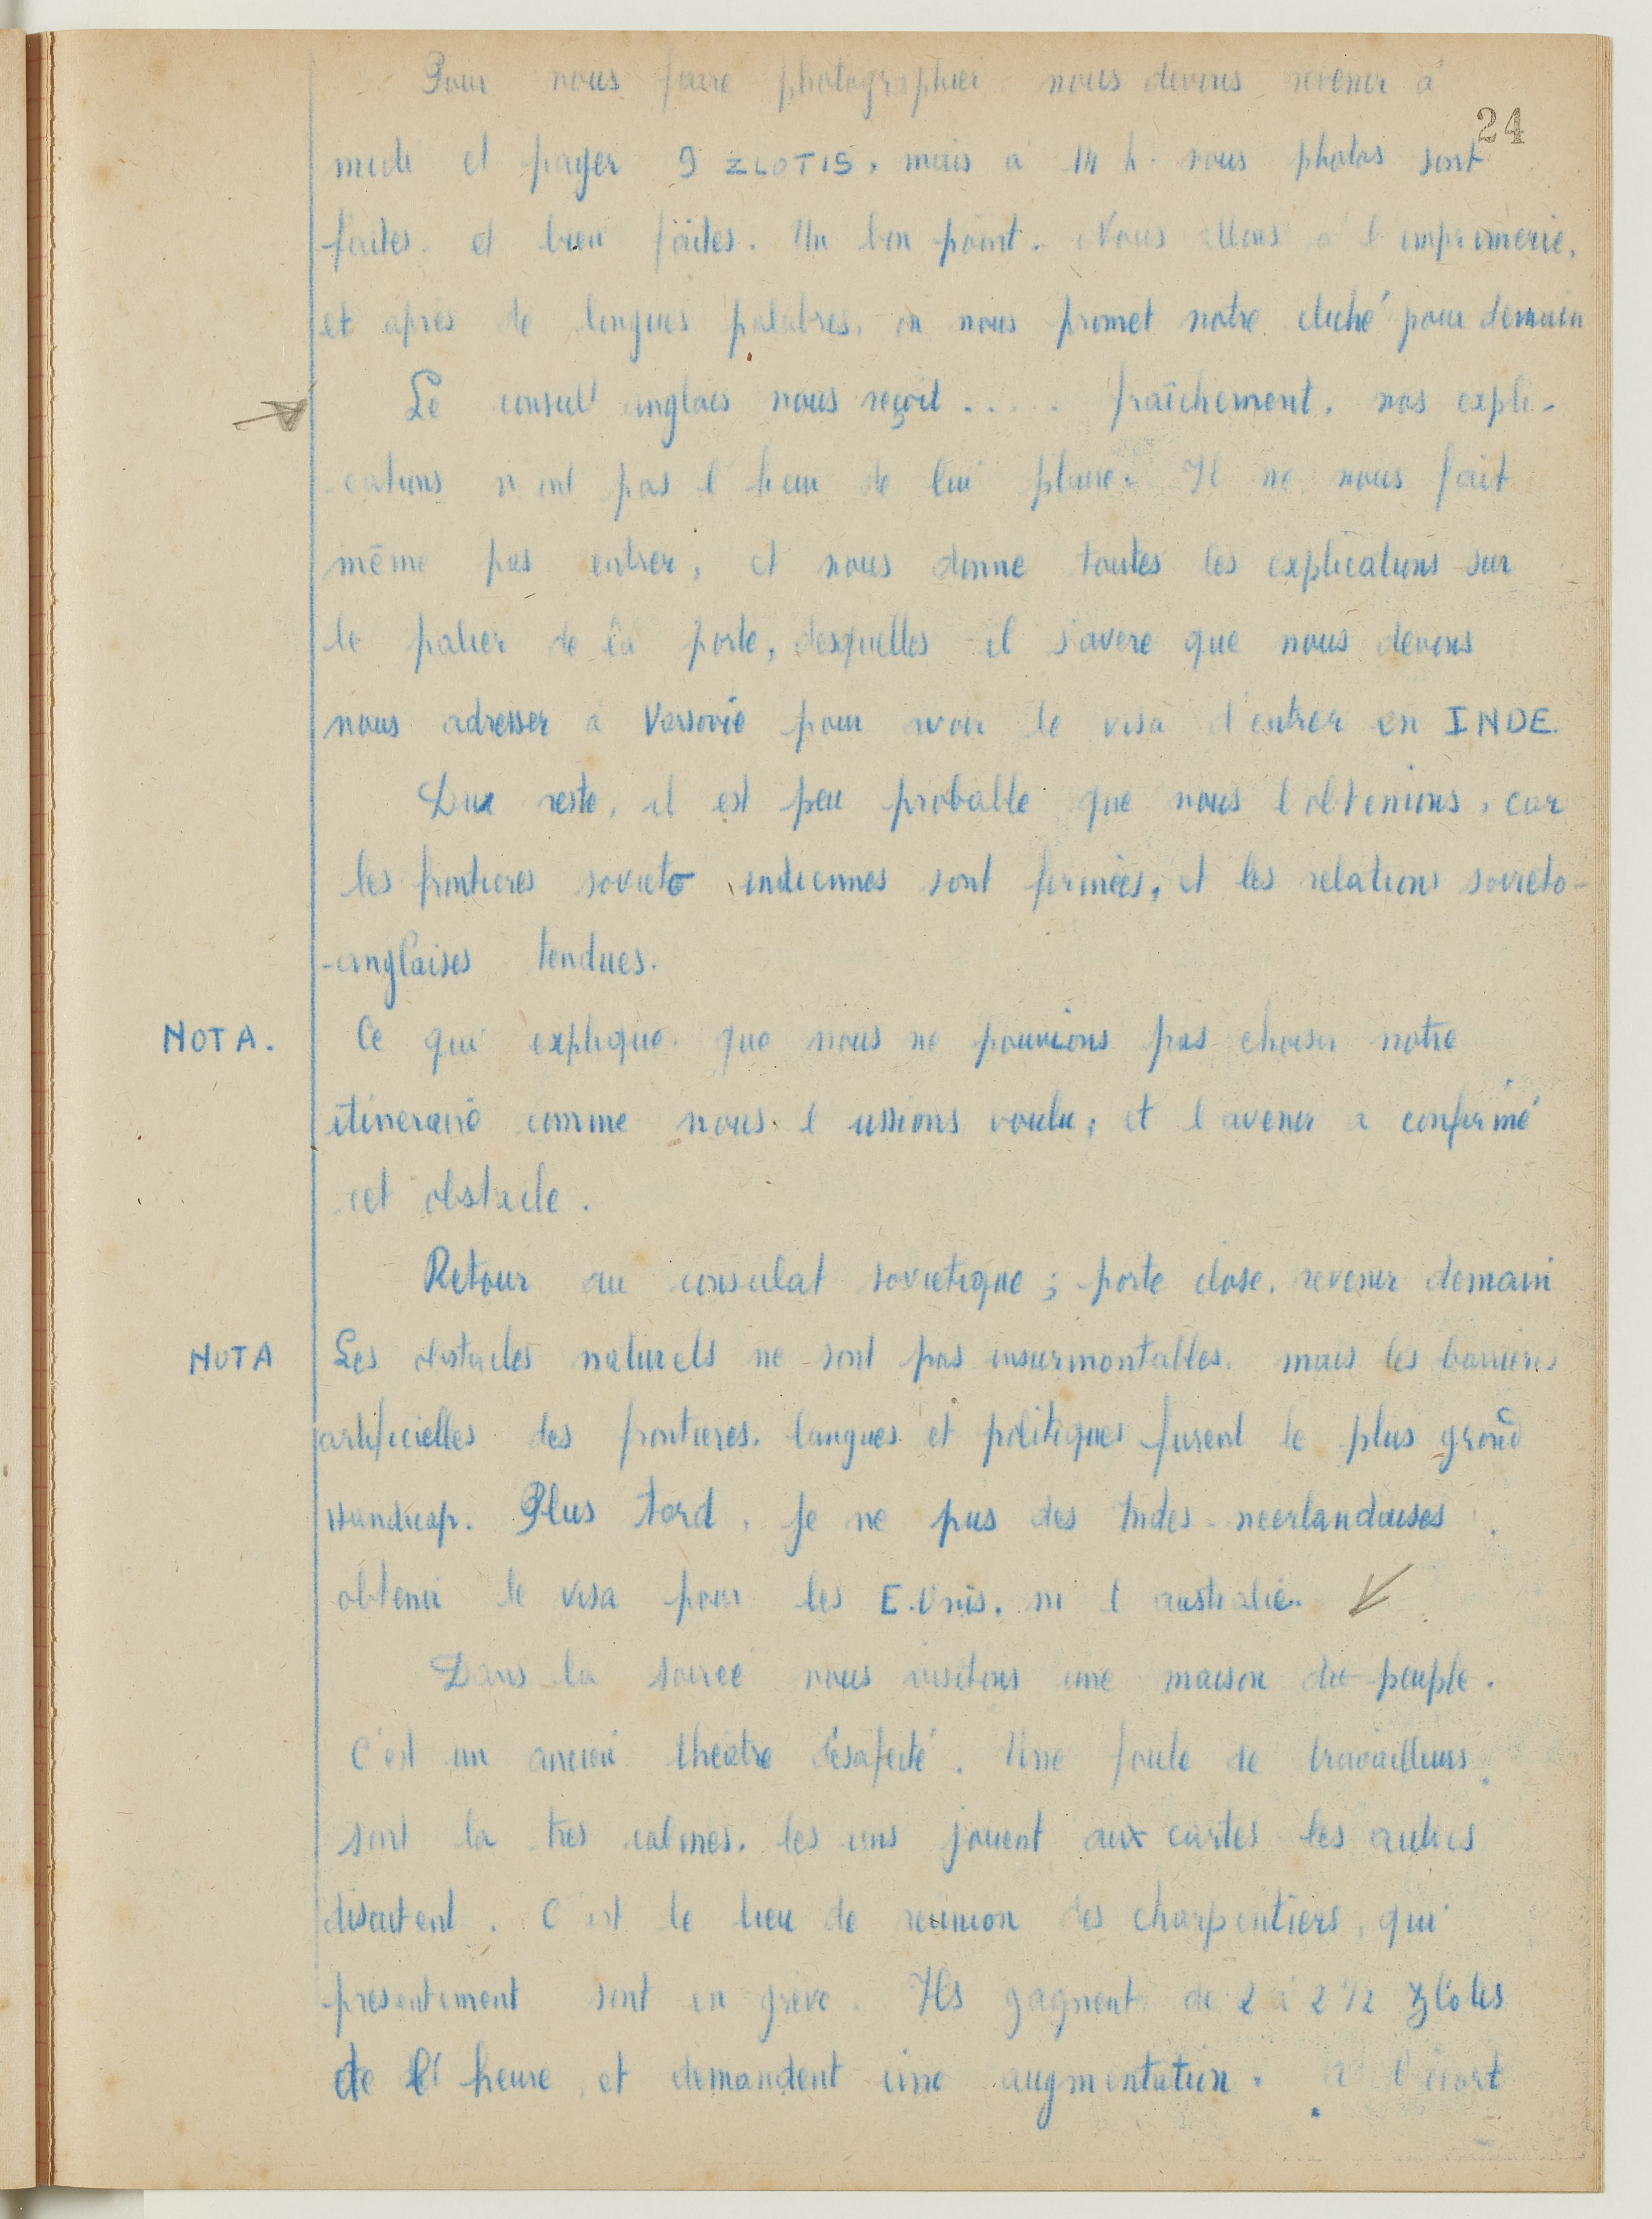 Pour nous faire photographier nous devons revenir à
24
midi et payer 9 ZLOTIS, mais à 14 h. nous photos sont
faites et bien faites. Un bon point. Nous allons à l'imprimerie,
et après de longues palabres, on nous promet notre cliché pour demain
Le consul anglais nous reçoit..... fraîchement, nos expli-
-cations n'ont pas l'heur de lui plaire. Il ne nous fait
même pas entrer, et nous donne toutes les explications sur
le palier de la porte, desquelles il s'avere que nous devons
nous adresser à Varsovie pour avoir le visa d'entrer en INDE.
Du reste, il est peu probable que nous l'obtenions, car
les frontieres sovieto indiennes sont fermées, et les relations sovieto-
-anglaises tendues.
NOTA. Ce qui explique que nous ne pouvions pas choisir notre
itineraire comme nous l'ussions voulu; et l'avenir a confirmé
cet obstacle.
Retour au consulat sovietique; porte close, revenir demain
NOTA Les obstacles naturels ne sont pas insurmontables, mais les barrieres
artificielles des frontieres, langues et politiques furent le plus grand
Handicap. Plus tard, je ne pus des Indes-neerlandaises
obtenir le visa pour les E.Unis, ni l'australie.
Dans la soirée nous visitons une maison du peuple.
C'est un ancien théatre désafecté. Une foule de travailleurs
sont la tres calmes. les uns jouent aux cartes les autres
discutent. C'est le lieu de reunion des charpentiers, qui
presentement sont en greve. Ils gagnent de 2 à 2 1/2 zlotes
de l'heure, et demandent une augmentation. A l'écart